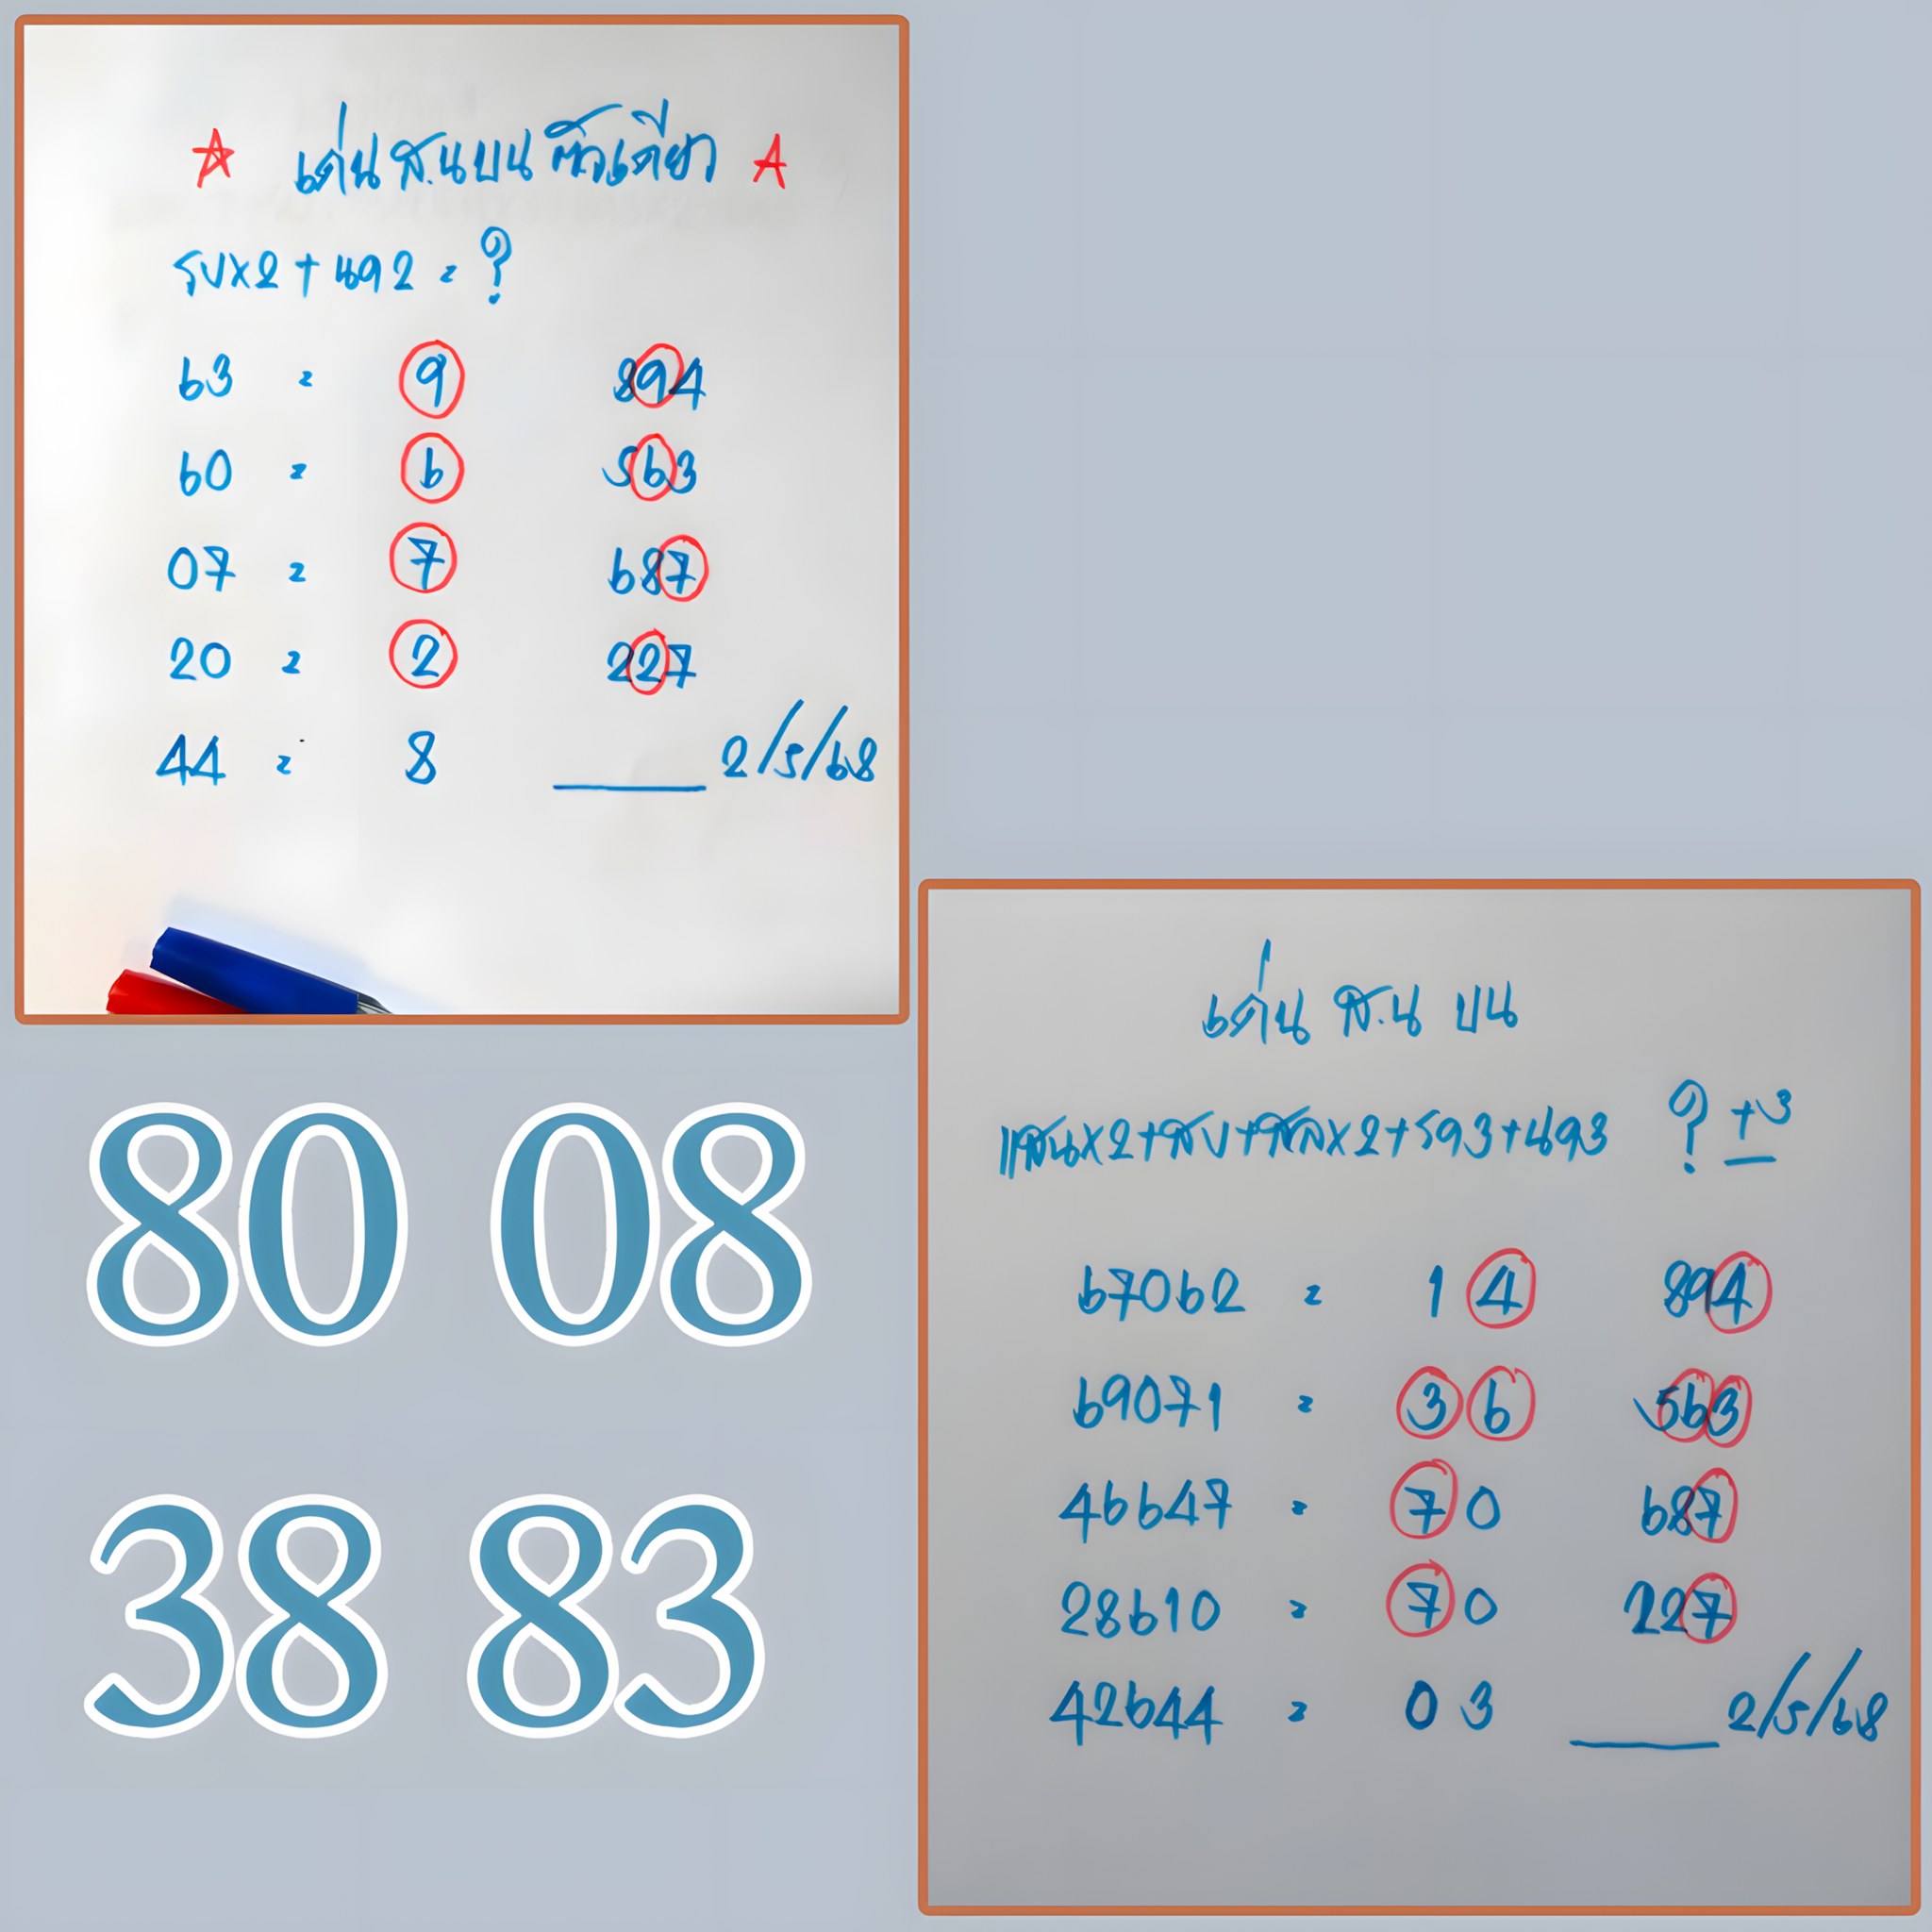 เด่น ส.น บน ตัวเดียว
รบx2+นต2 = ?
63 = 9 894
60 = 6 563
07 = 7 687
20 = 2 227
44 = 8 2/5/68
80 08
38 83
เด่น ส.น บน
แสนx2+สบ+สลx2+รต3+นต3 ? +3
67062 = 14 894
69071 = 36 563
46647 = 70 687
28610 = 70 227
42644 = 03 2/5/68